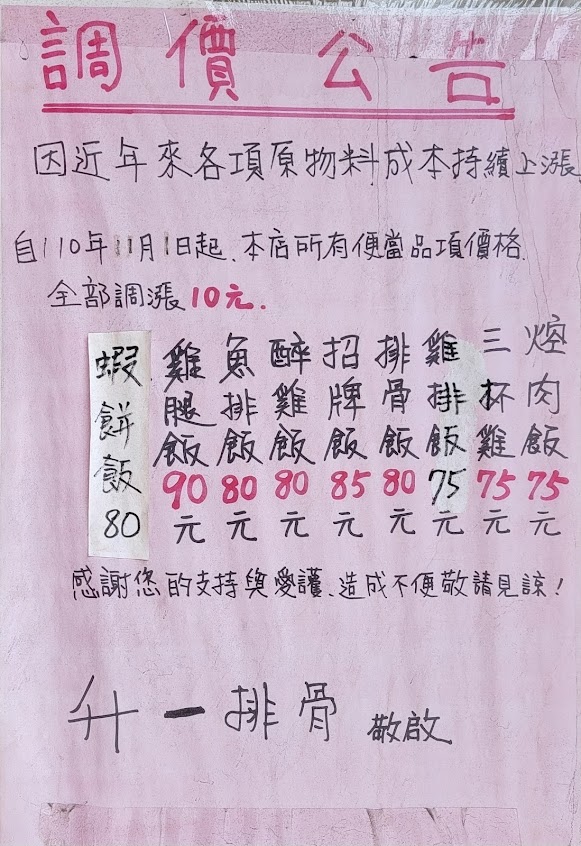 調價公告
因近年來各項原物料成本持續上漲
自110年11月1日起、本店所有便當品項價格
全部調漲10元.
焢肉飯75元
三杯雞75元
雞排飯75元
排骨飯80元
招牌飯85元
醉雞飯80元
魚排飯80元
雞腿飯90元
蝦餅飯80
感謝您的支持與愛護、造成不便敬請見諒！
升一排骨 敬啟